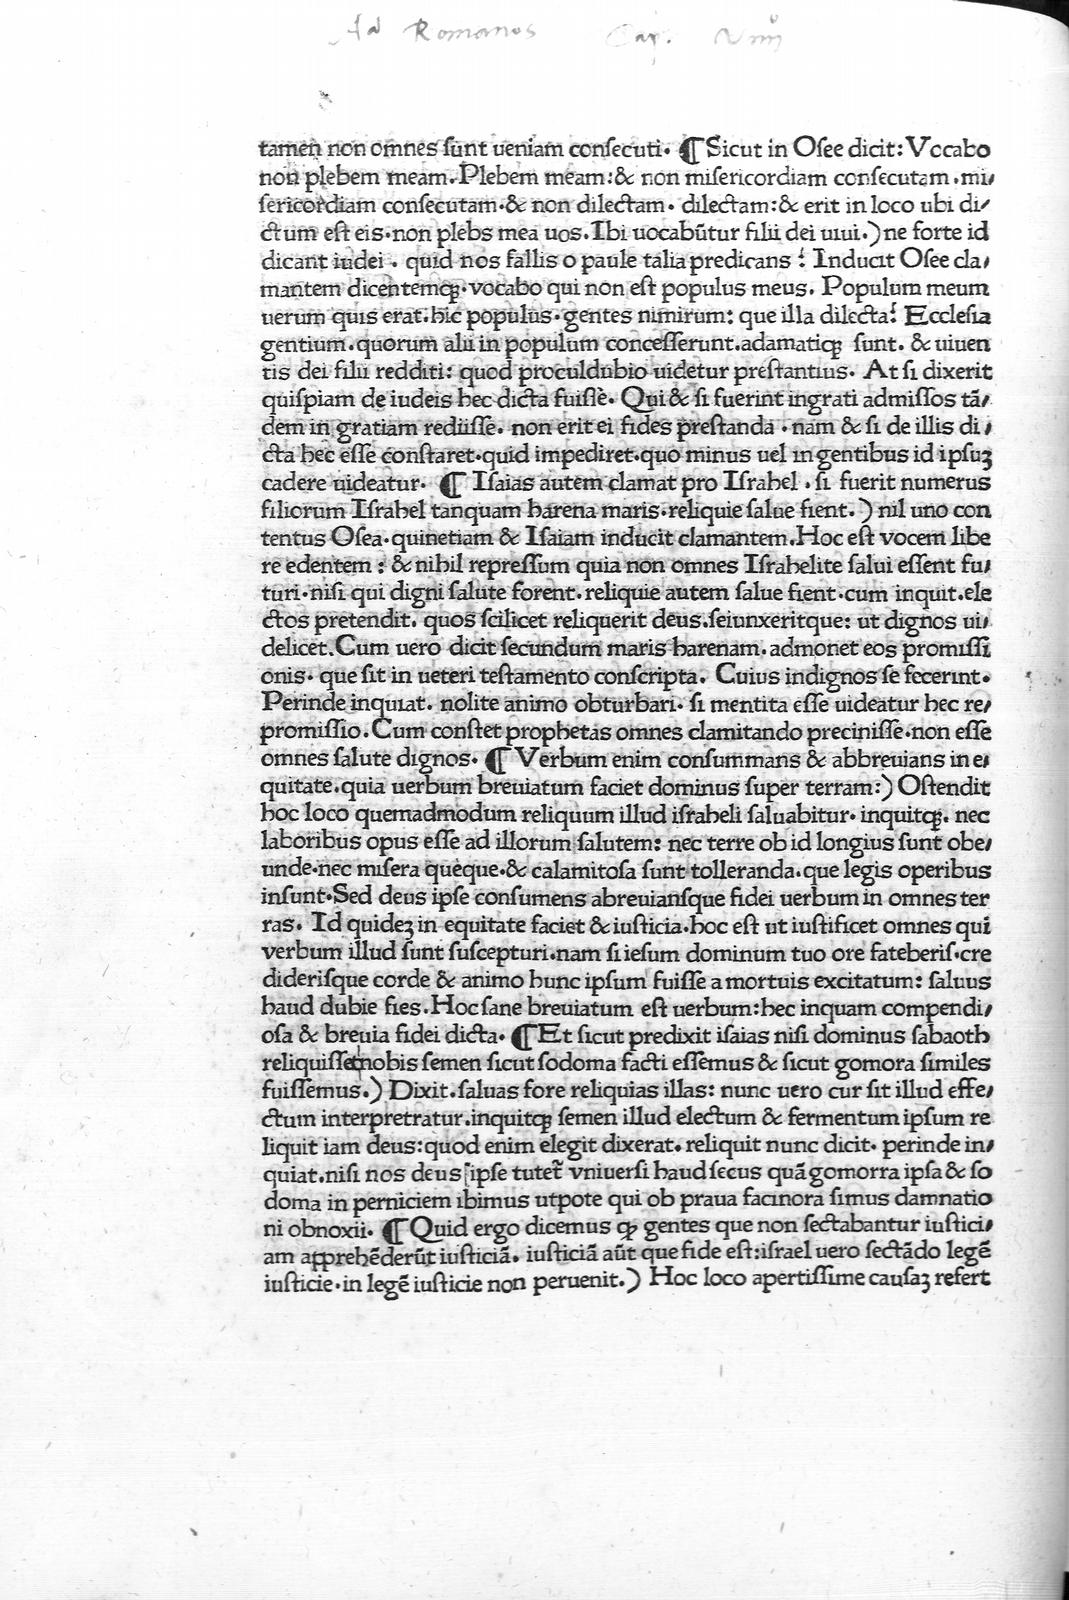 Ad Romanos Cap.
tamen non omnes ſunt ueniam conſecuti. ¶ Sicut in Oſee dicit: Vocabo
non plebem meam. Plebem meam: & non miſericordiam conſecutam. mi⸗
ſericordiam conſecutam. & non dilectam. dilectam: & erit in loco ubi di⸗
ctum eſt eis. non plebs mea uos. Ibi uocabūtur filii dei uiui.) ne forte id
dicant iudei. quid nos fallis o paule talia predicans? Inducit Oſee cla⸗
mantem dicentemꝗ. vocabo qui non eſt populus meus. Populum meum
uerum quis erat. hic populus. gentes nimirum: que illa dilecta? Eccleſia
gentium. quorum alii in populum conceſſerunt. adamatiꝗ ſunt. & uiuen
tis dei filii redditi: quod proculdubio uidetur preſtantius. At ſi dixerit
quiſpiam de iudeis hec dicta fuiſſe. Qui & ſi fuerint ingrati admiſſos tā⸗
dem in gratiam rediiſſe. non erit ei fides preſtanda. nam & ſi de illis di⸗
cta hec eſſe conſtaret. quid impediret. quo minus uel in gentibus id ipſuꝫ
cadere uideatur. ¶ Iſaias autem clamat pro Iſrahel. ſi fuerit numerus
filiorum Iſrahel tanquam harena maris. reliquie ſalue fient.) nil uno con
tentus Oſea. quinetiam & Iſaiam inducit clamantem. Hoc eſt vocem libe
re edentem: & nihil repreſſum quia non omnes Iſrahelite ſalui eſſent fu⸗
turi. niſi qui digni ſalute forent. reliquie autem ſalue fient. cum inquit. ele
ctos pretendit. quos ſcilicet reliquerit deus. ſeiunxeritque: ut dignos ui⸗
delicet. Cum uero dicit ſecundum maris harenam. admonet eos promiſſi
onis. que ſit in ueteri teſtamento conſcripta. Cuius indignos ſe fecerint.
Perinde inquiat. nolite animo obturbari. ſi mentita eſſe uideatur hec re⸗
promiſſio. Cum conſtet prophetas omnes clamitando preciniſſe. non eſſe
omnes ſalute dignos. ¶ Verbum enim conſummans & abbreuians in e⸗
quitate. quia uerbum breuiatum faciet dominus ſuper terram:) Oſtendit
hoc loco quemadmodum reliquum illud iſraheli ſaluabitur. inquitꝗ. nec
laboribus opus eſſe ad illorum ſalutem: nec terre ob id longius ſunt obe⸗
unde. nec miſera queque. & calamitoſa ſunt tolleranda. que legis operibus
inſunt. Sed deus ipſe conſumens abreuianſque fidei uerbum in omnes ter
ras. Id quideꝫ in equitate faciet & iuſticia. hoc eſt ut iuſtificet omnes qui
verbum illud ſunt ſuſcepturi. nam ſi ieſum dominum tuo ore fateberiſ. cre
dideriſque corde & animo hunc ipſum fuiſſe a mortuis excitatum: ſaluus
haud dubie fies. Hoc ſane breuiatum eſt uerbum: hec inquam compendi⸗
oſa & breuia fidei dicta. ¶ Et ſicut predixit iſaias niſi dominus ſabaoth
reliquiſſet nobis ſemen ſicut ſodoma facti eſſemus & ſicut gomora ſimiles
fuiſſemus.) Dixit. ſaluas fore reliquias illas: nunc uero cur ſit illud effe⸗
ctum interpretratur. inquitꝗ ſemen illud electum & fermentum ipſum re
liquit iam deus: quod enim elegit dixerat. reliquit nunc dicit. perinde in⸗
quiat. niſi nos deus ipſe tutet̃ vniuerſi haud ſecus quā gomorra ipſa & ſo
doma in perniciem ibimus utpote qui ob praua facinora ſimus damnatio
ni obnoxii. ¶ Quid ergo dicemus ꝙ gentes que non ſectabantur iuſtici⸗
am apprehēderūt iuſticiā. iuſticiā aūt que fide eſt: iſrael uero ſectādo legē
iuſticie. in legē iuſticie non peruenit.) Hoc loco apertiſſime cauſaꝫ refert